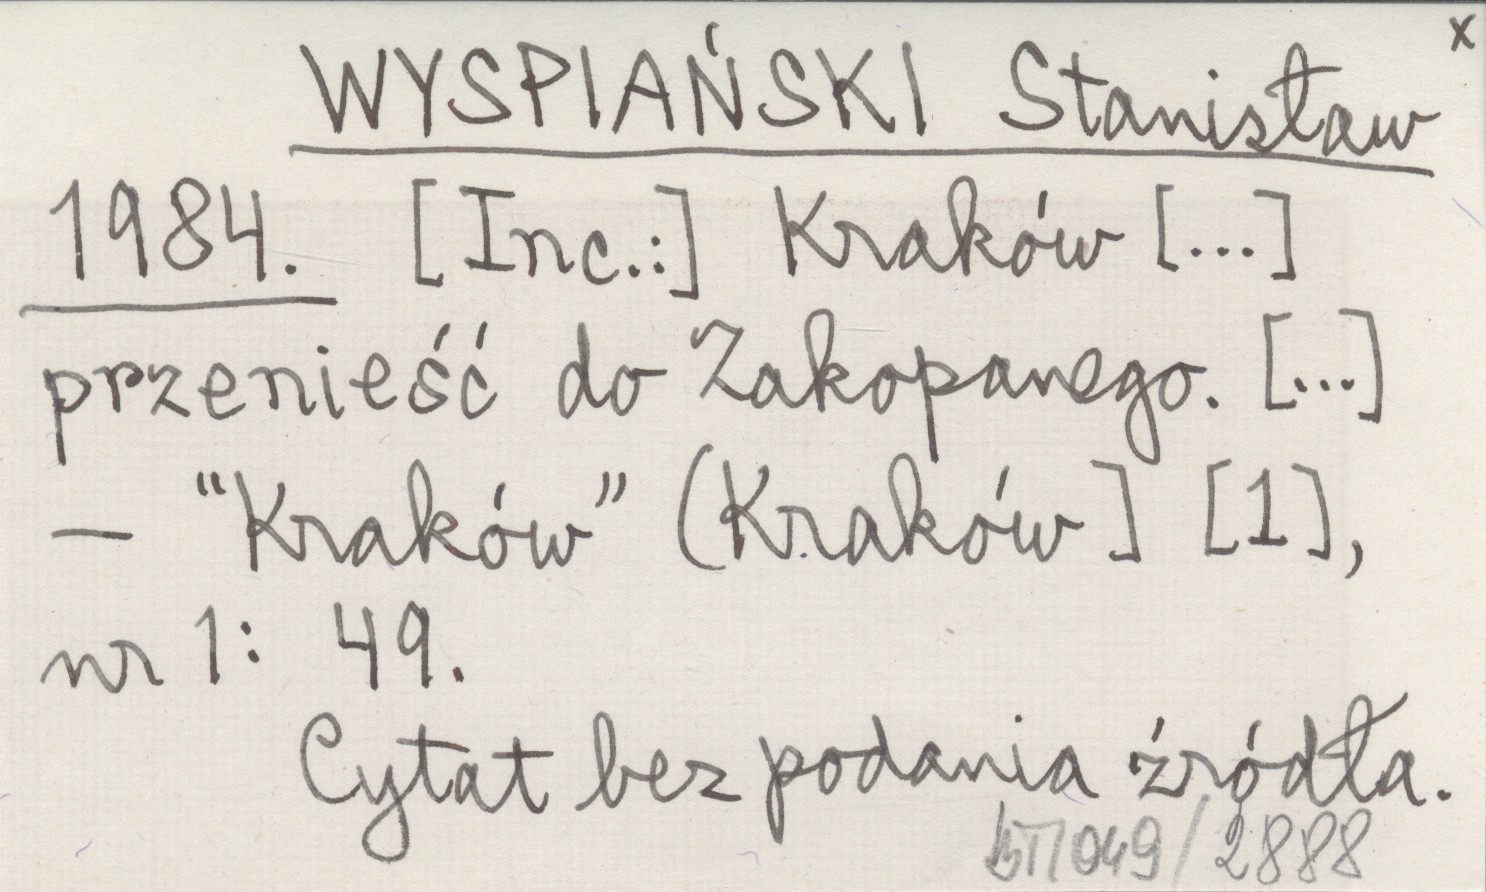 x
WYSPIAŃSKI Stanisław
1984. [Inc.:] Kraków [...]
przenieść do Zakopanego. [...]
— "Kraków" (Kraków] [1],
nr 1: 49.
Cytat bez podania źródła.
/2888